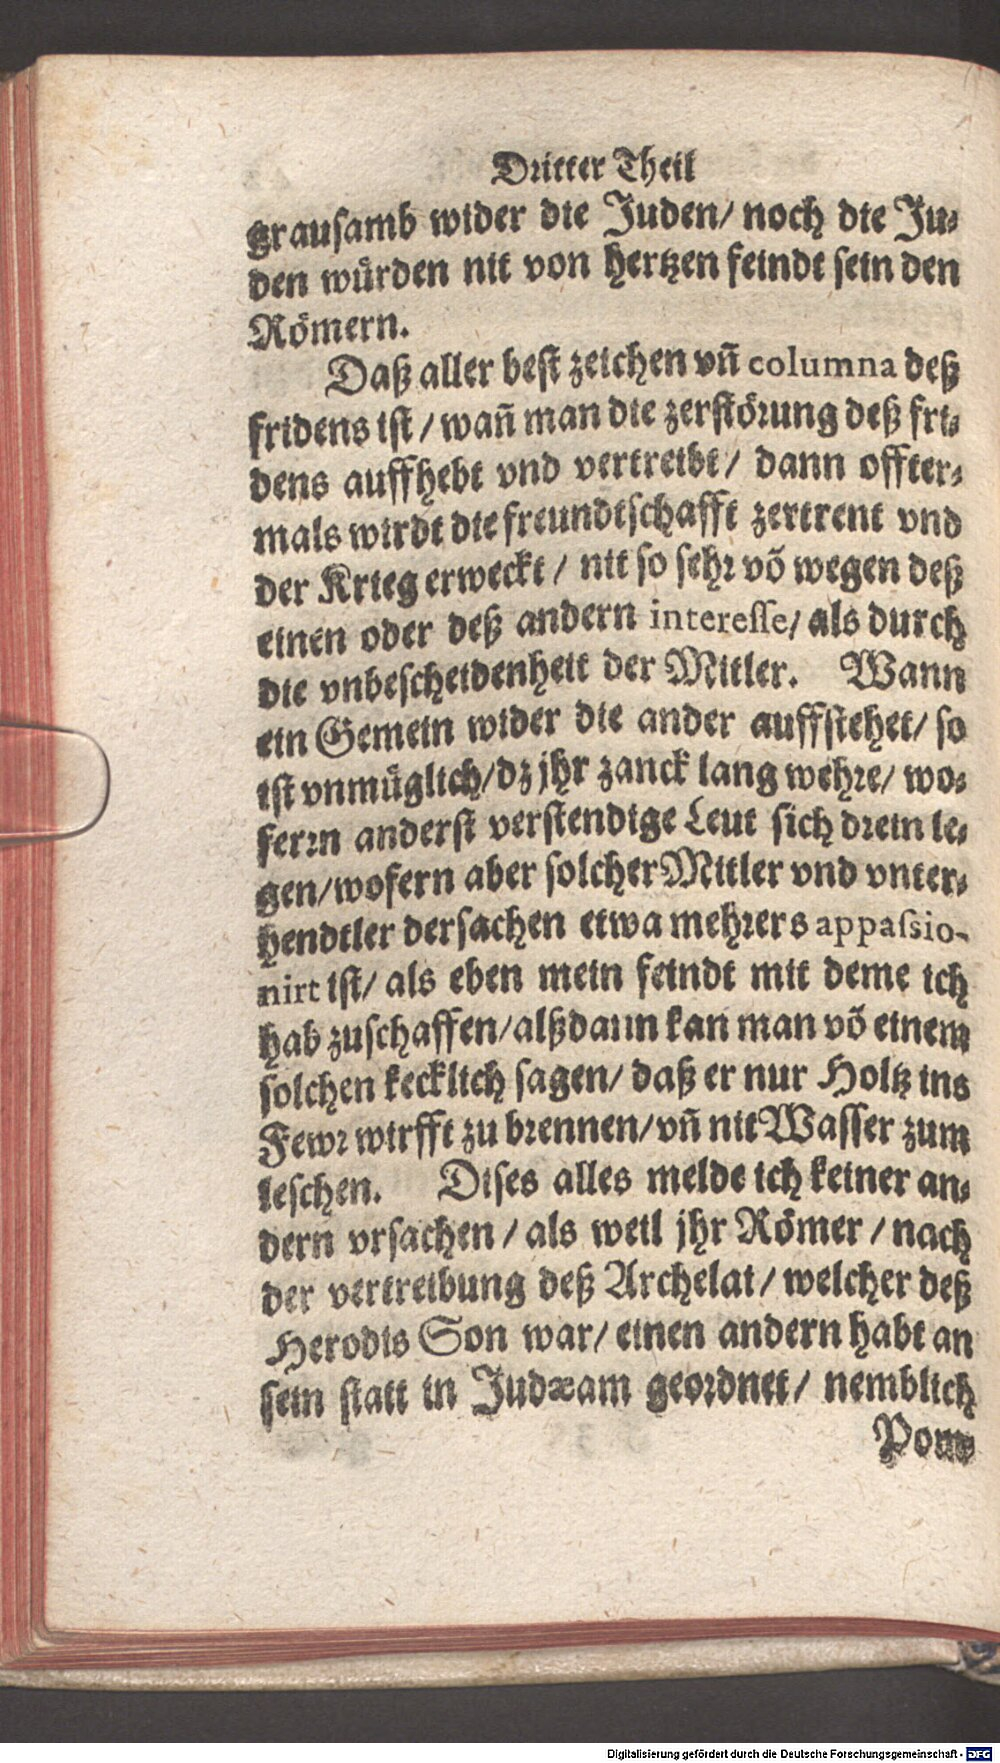 Dritter Theil
grausamb wider die Juden/ noch die Ju-
den würden nit von hertzen feindt sein den
Römern.
Daß aller best zeichen vñ columna deß
fridens ist / wañ man die zerstörung deß fri-
dens auffhebt vnd vertreibt / dann offter-
mals wirdt die freundtschafft zertrent vnd
der Krieg erweckt / nit so sehr võ wegen deß
einen oder deß andern interesse/ als durch
die vnbescheidenheit der Mitler. Wann
ein Gemein wider die ander auffstehet/ so
ist vnmüglich/ dz jhr zanck lang wehre/ wo-
ferrn anderst verstendige Leut sich drein le-
gen/ wofern aber solcher Mitler vnd vnter-
hendtler der sachen etwa mehrers appassio-
nirt ist/ als eben mein feindt mit deme ich
hab zuschaffen/ alßdann kan man võ einem
solchen kecklich sagen/ daß er nur Holtz ins
Fewr wirfft zu brennen/ vñ nit Wasser zum
leschen. Dises alles melde ich keiner an-
dern vrsachen / als weil jhr Römer / nach
der vertreibung deß Archelai / welcher deß
Herodis Son war/ einen andern habt an
sein statt in Judæam geordnet/ nemblich
Pom-
Digitalisierung gefördert durch die Deutsche Forschungsgemeinschaft - DFG